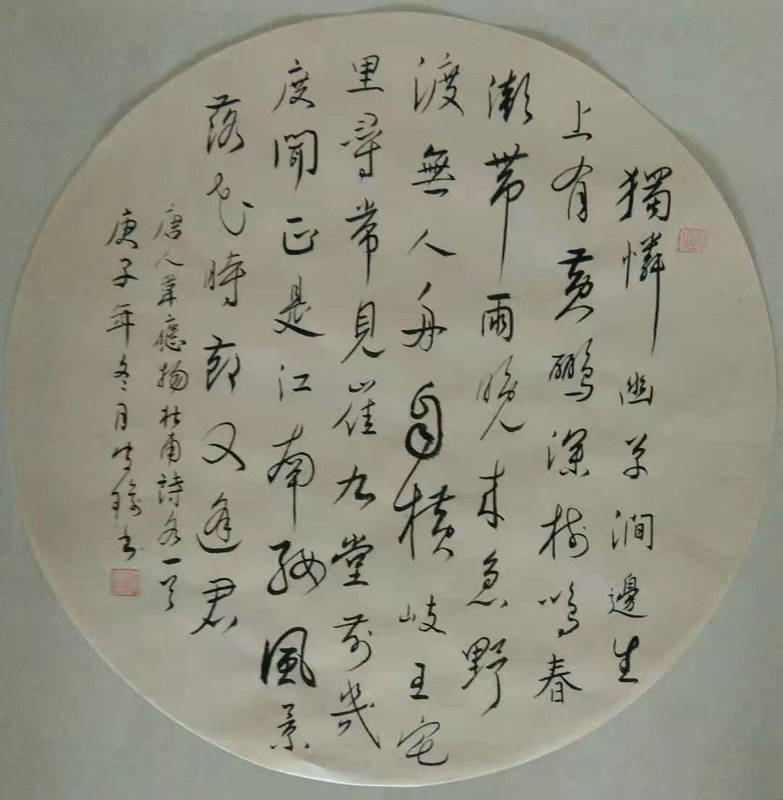 獨憐幽草澗邊生
上有黃鸝深樹鳴春
潮帶雨晚來急野
渡無人舟自橫岐王宅
里尋常見崔九堂前幾
度聞正是江南好風景
落花時節又逢君
唐人韋應物杜甫詩各一首
庚子年冬月 書